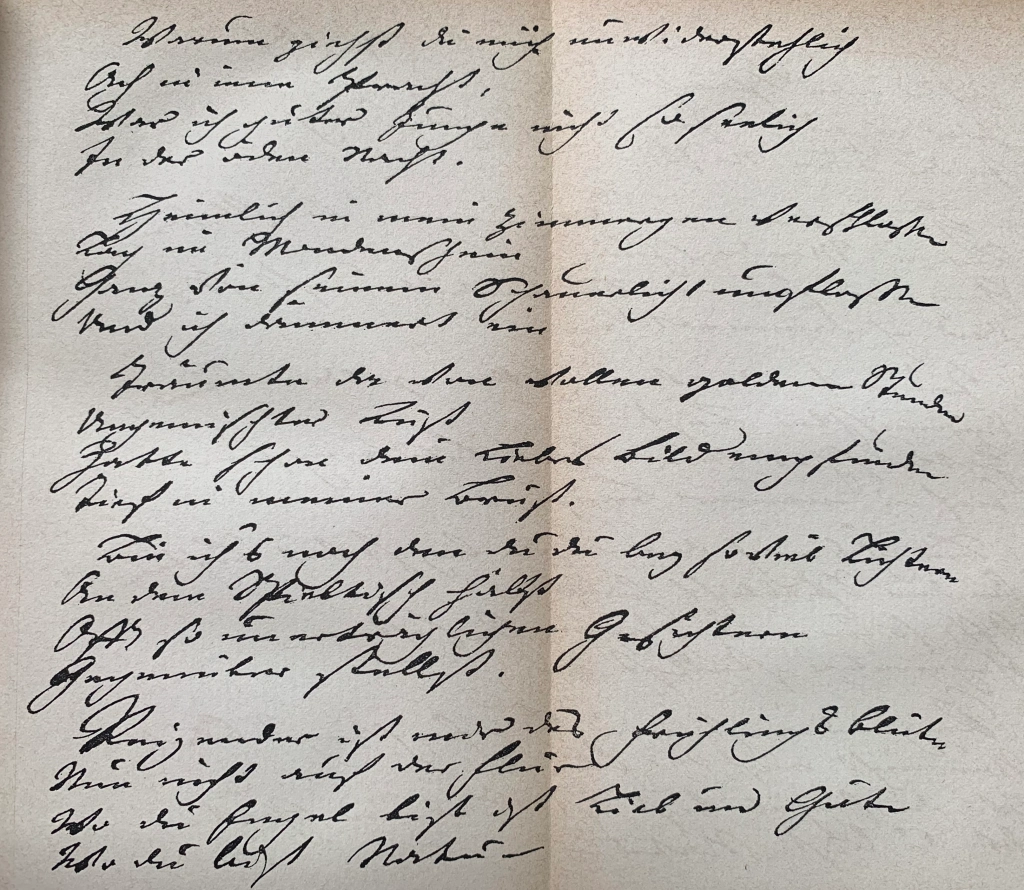 Warum ziehst du mich unwiderstehlich
Ach in iene Pracht,
War ich guter Junge nicht so seelich
In der öden Nacht.
Heimlich in mein Zimmergen verschlossen
Lag im Mondenschein
Ganz von seinem Schauerlicht umflossen
Und ich dämmert ein
Träumte da von vollen goldenen Stunden
Ungemischter Lust
Hatte schon dein liebes Bild empfunden
Tief in meiner Brust.
Bin ich's noch den du bey so viel Lichtern
An dem Spieltisch hältst
Offt so unerträglichen Gesichtern
Gegenüber stellst.
Reizender ist mir des Frühlings Blüte
Nun nicht auf der Flur
Wo du Engel bist ist Lieb und Güte
Wo du bist Natur